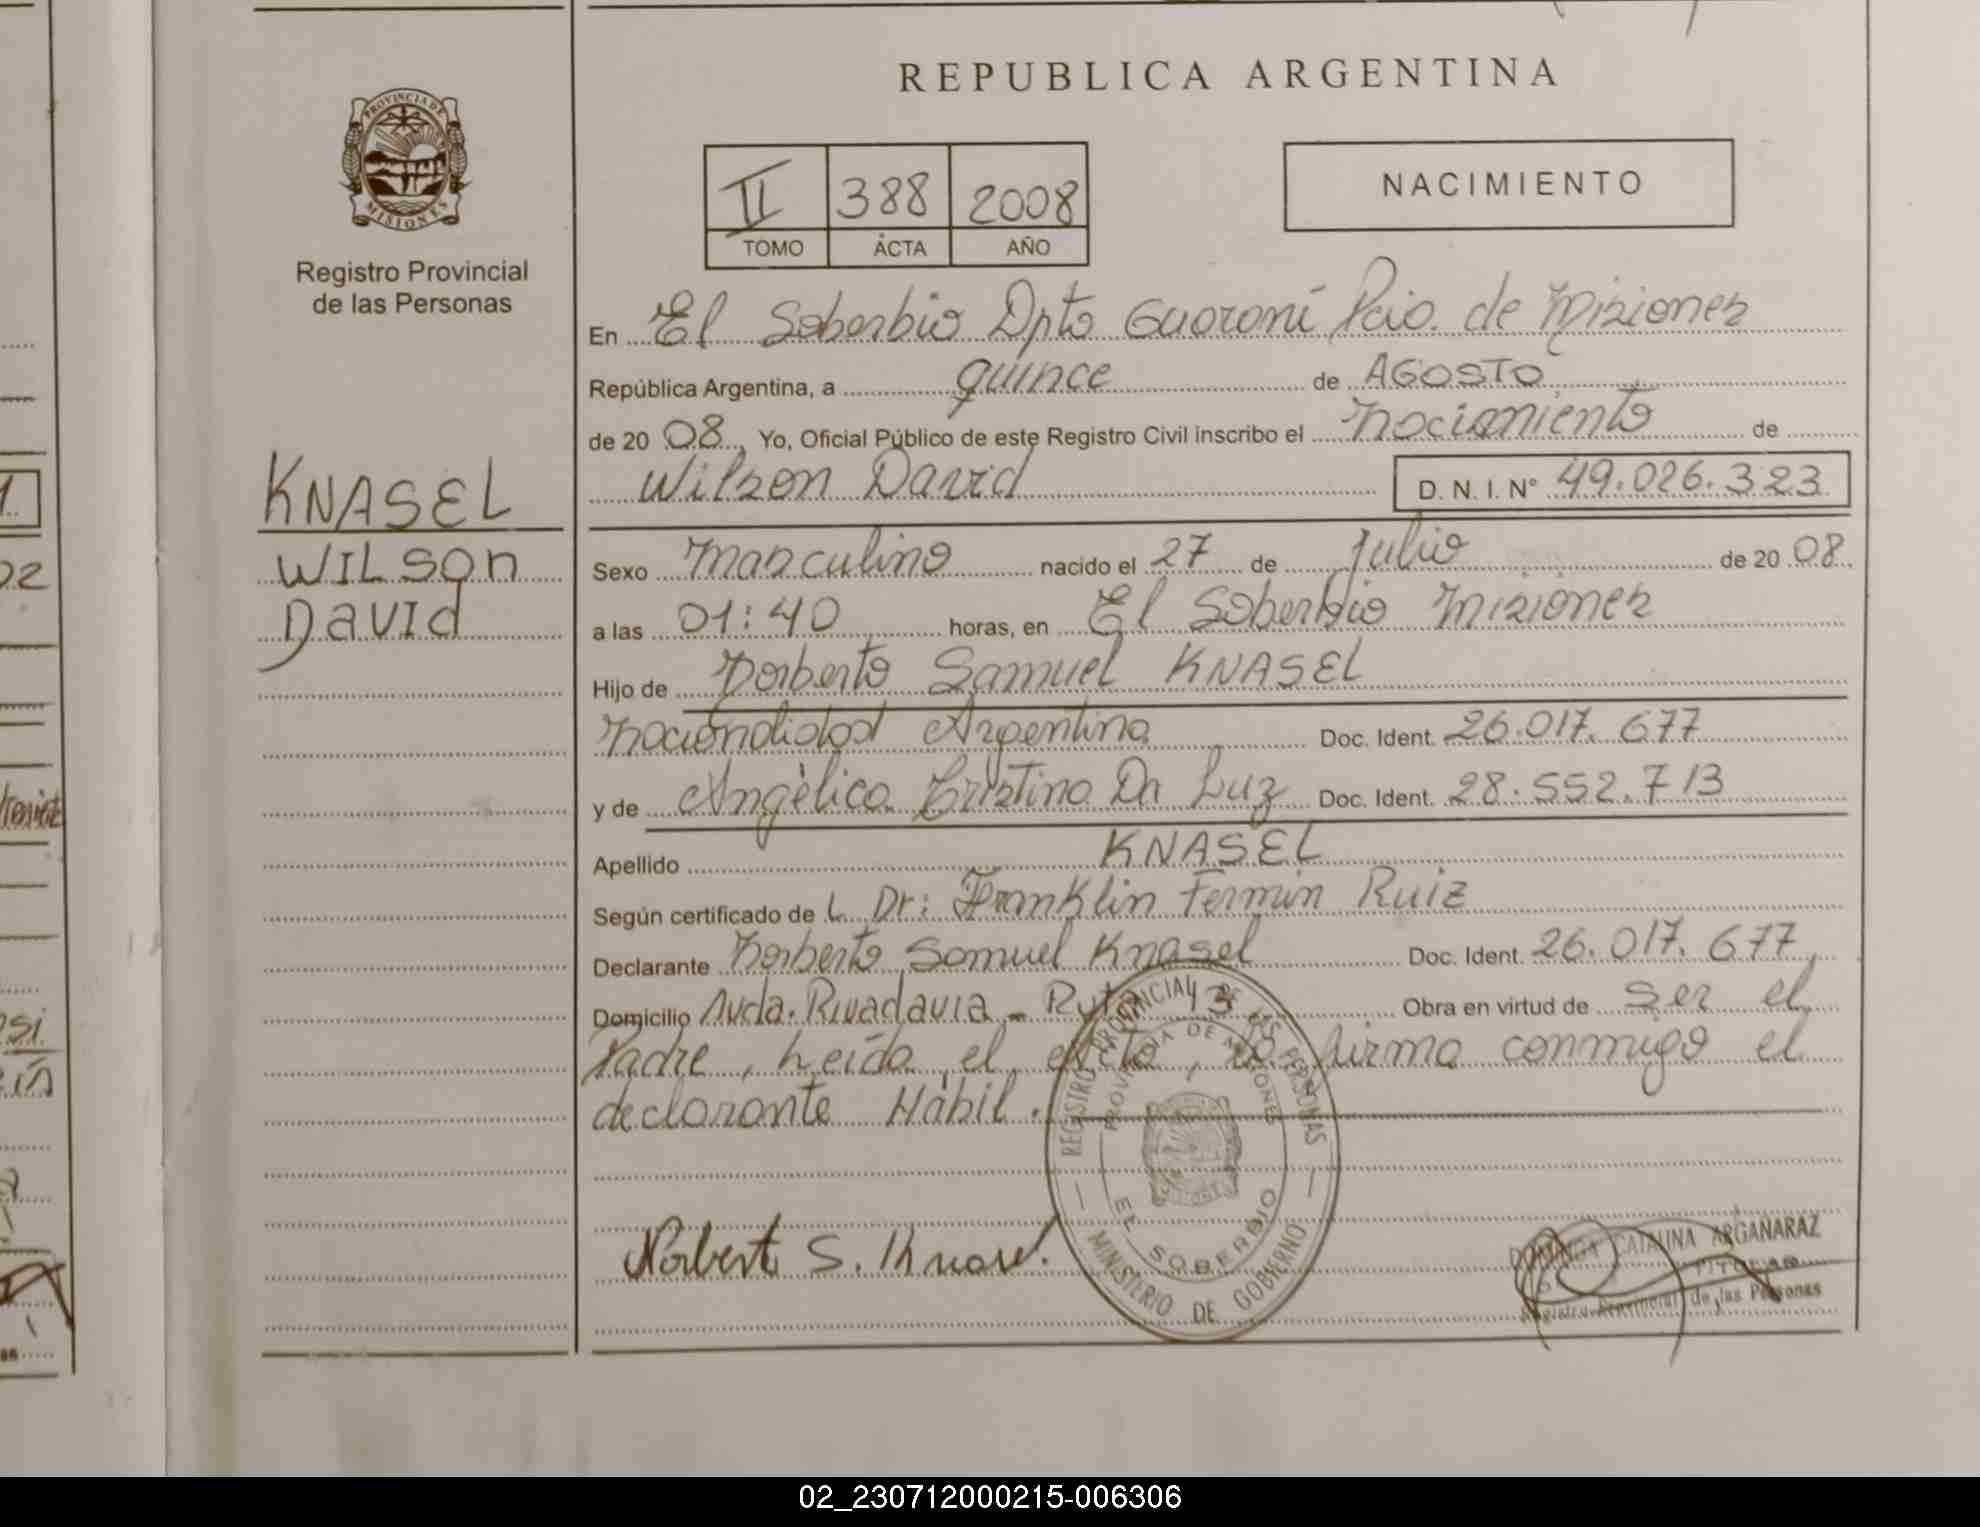 REPUBLICA ARGENTINA
PROVINCIA DE
MISIONES
Registro Provincial
de las Personas
II 388 2008
TOMO ACTA AÑO
NACIMIENTO
En El Soberbio Dpto Guaraní Pcia. de Misiones
República Argentina, a quince de AGOSTO
de 20 08, Yo, Oficial Público de este Registro Civil inscribo el nacimiento de
Wilson David D. N. I. Nº 49.026.323
KNASEL
WILSON
DAVID
Sexo Masculino nacido el 27 de Julio de 20 08.
a las 01:40 horas, en El Soberbio Misiones
Hijo de Norberto Samuel KNASEL
nacionalidad Argentina Doc. Ident. 26.017.677
y de Angélica Cristina Da Luz Doc. Ident. 28.552.713
Apellido KNASEL
Según certificado de L Dr: Franklin Fermin Ruiz
Declarante Norberto Samuel Knasel Doc. Ident. 26.017.677,
Domicilio Avda. Rivadavia - Ruta 13 Obra en virtud de ser el
Padre, Leída el acta, la firma conmigo el
declarante Hábil.
REGISTRO PROVINCIAL DE LAS PERSONAS
PROVINCIA DE MISIONES
EL SOBERBIO
MINISTERIO DE GOBIERNO
Norberto S. Knasel.
DOMINGA CATALINA ARGAÑARAZ
TITULAR
Registro Provincial de las Personas
02_230712000215-006306